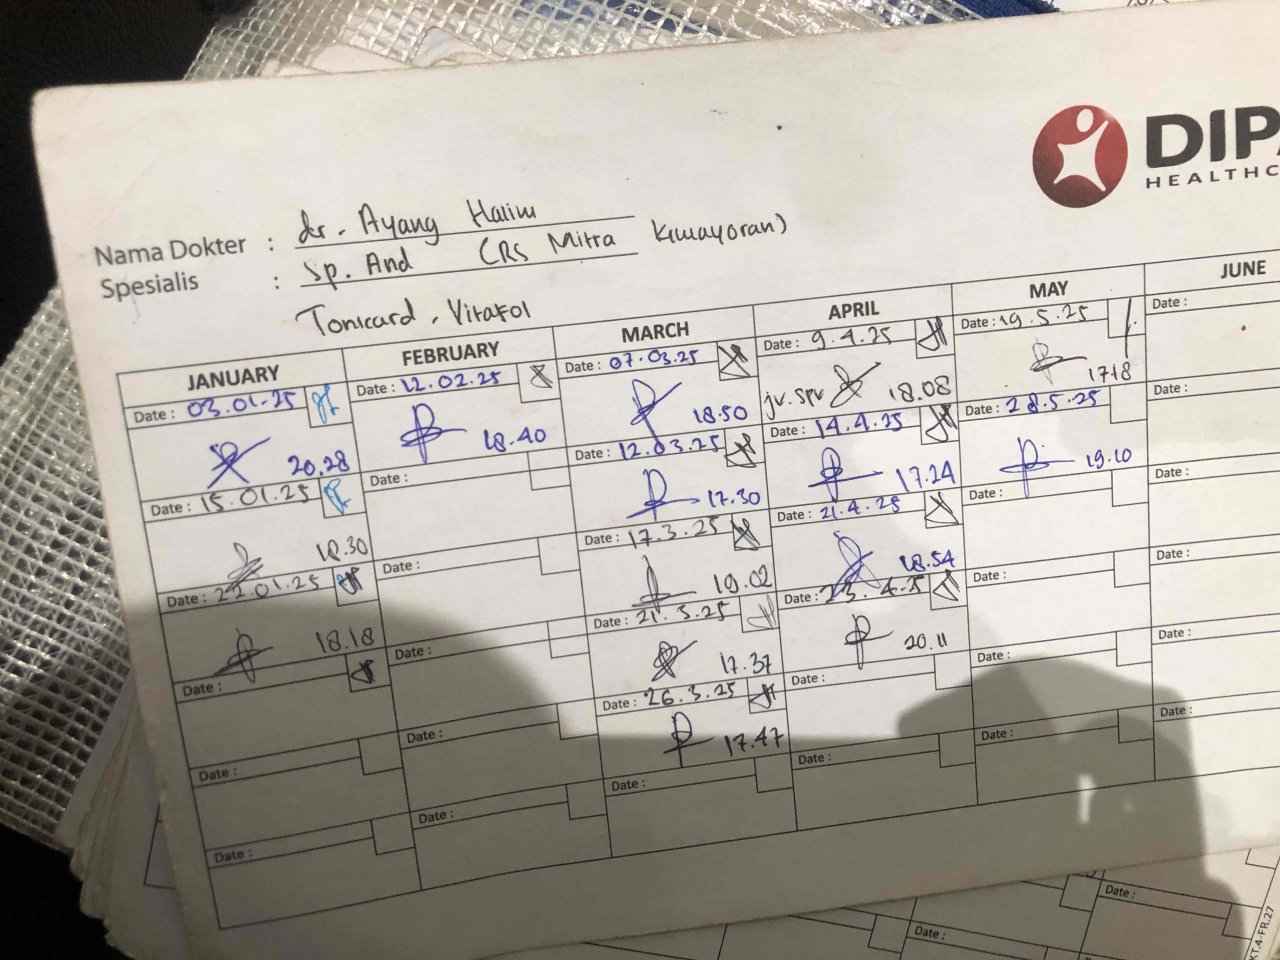 DIPA
HEALTHC
Nama Dokter : dr. Ayang Halim
Spesialis : Sp. And (RS Mitra Kemayoran)
Tonicard, Vitafol
JANUARY FEBRUARY MARCH APRIL MAY JUNE
Date : 03.01.25 Date : 12.02.25 Date : 07.03.25 Date : 9.4.25 Date : 19.5.25 Date :
20.28 18.40 18.50 jv. spv 18.08 1718
Date : 15.01.25 Date : Date : 12.03.25 Date : 14.4.25 Date : 28.5.25 Date :
18.30 17.30 17.24 19.10
Date : 22.01.25 Date : Date : 17.3.25 Date : 21.4.25 Date : Date :
18.18 19.02 18.54
Date : Date : Date : 21.3.25 Date : 23.4.25 Date : Date :
17.37 20.11
Date : Date : Date : 26.3.25 Date : Date : Date :
17.47
Date : Date : Date : Date : Date : Date :
Date :
Date :
KT.4-FR.27